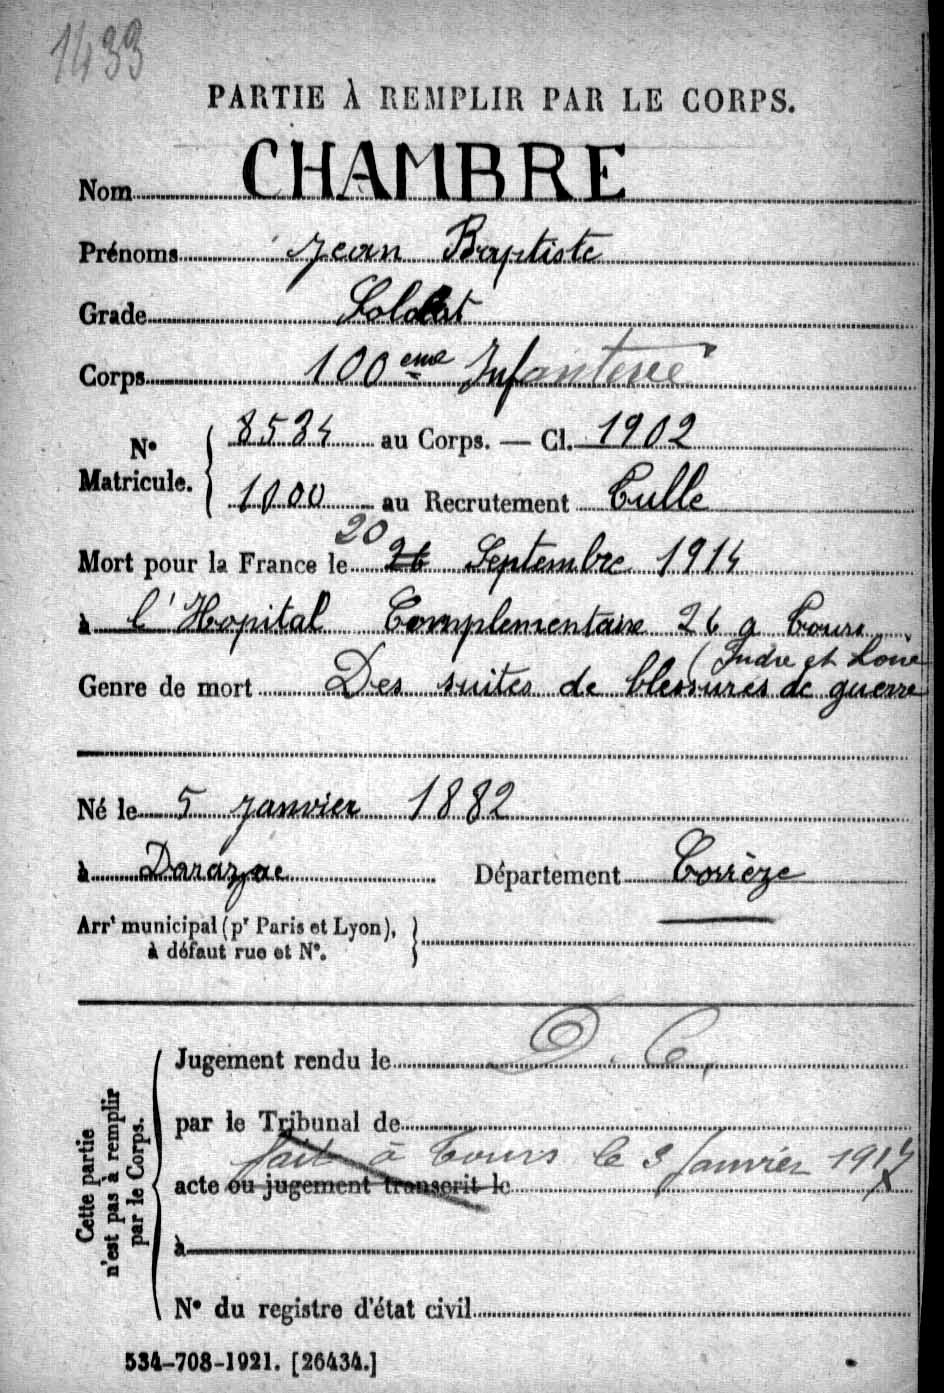 1433
PARTIE À REMPLIR PAR LE CORPS.
Nom CHAMBRE
Prénoms Jean Baptiste
Grade Soldat
Corps 100 eme Infanterie
N° Matricule. { 8534 au Corps. — Cl. 1902
1100 au Recrutement Tulle
20
Mort pour la France le 26 Septembre 1914
à l'Hopital Complementaire 26 a Tours
(Indre et Loire
Genre de mort Des suites de blessures de guerre
Né le 5 Janvier 1882
à Darazac Département Corrèze
Arrt municipal (pr Paris et Lyon),
à défaut rue et N°.
Cette partie n'est pas à remplir par le Corps.
Jugement rendu le D. C.
par le Tribunal de
fait à Tours le 3 Janvier
acte ou jugement transcrit le
à
N° du registre d'état civil
534-708-1921. [26434.]